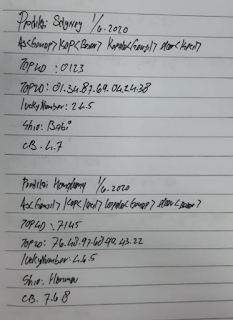 Prediksi Sidgney 1/4.2020
As<Genap> KOP<Besar> Kepala<Ganjil> ekor<Kecil>
TOP4D : 0123
TOP2D: 01.34.87.69.04.24.38
lucky Number: 2.6.5
Shio: Babi
CB. 4.7
Prediksi Hongkong 1/4.2020
As<Ganjil> KOP<Kecil> kepala<Genap> ekor<Besar>
TOP4D : 7145
TOP2D: 76.48.97.60.49.43.22
luckyNumber: 4.6.5
Shio: Harimau
CB. 7.6.8